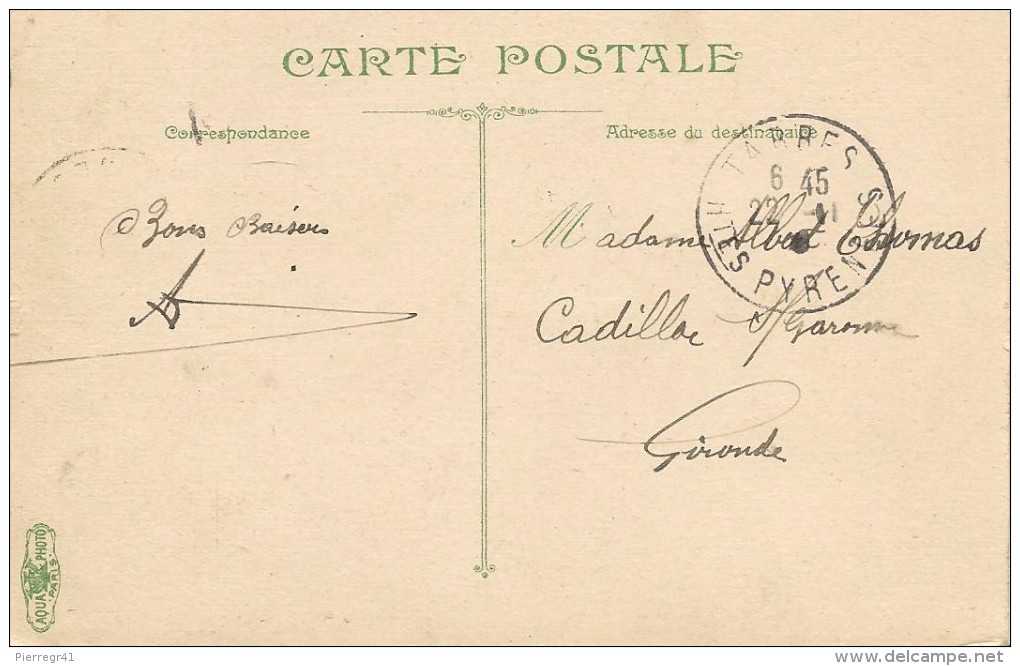 CARTE POSTALE
Correspondance
Adresse du destinataire
TARBES
6 45
22 -11
HTES PYRÉNÉES
Bons Baisers
A
Madame Albert Thomas
Cadillac s/Garonne
Gironde
AQUA PHOTO
PARIS
Pierregr41
delcampe.net